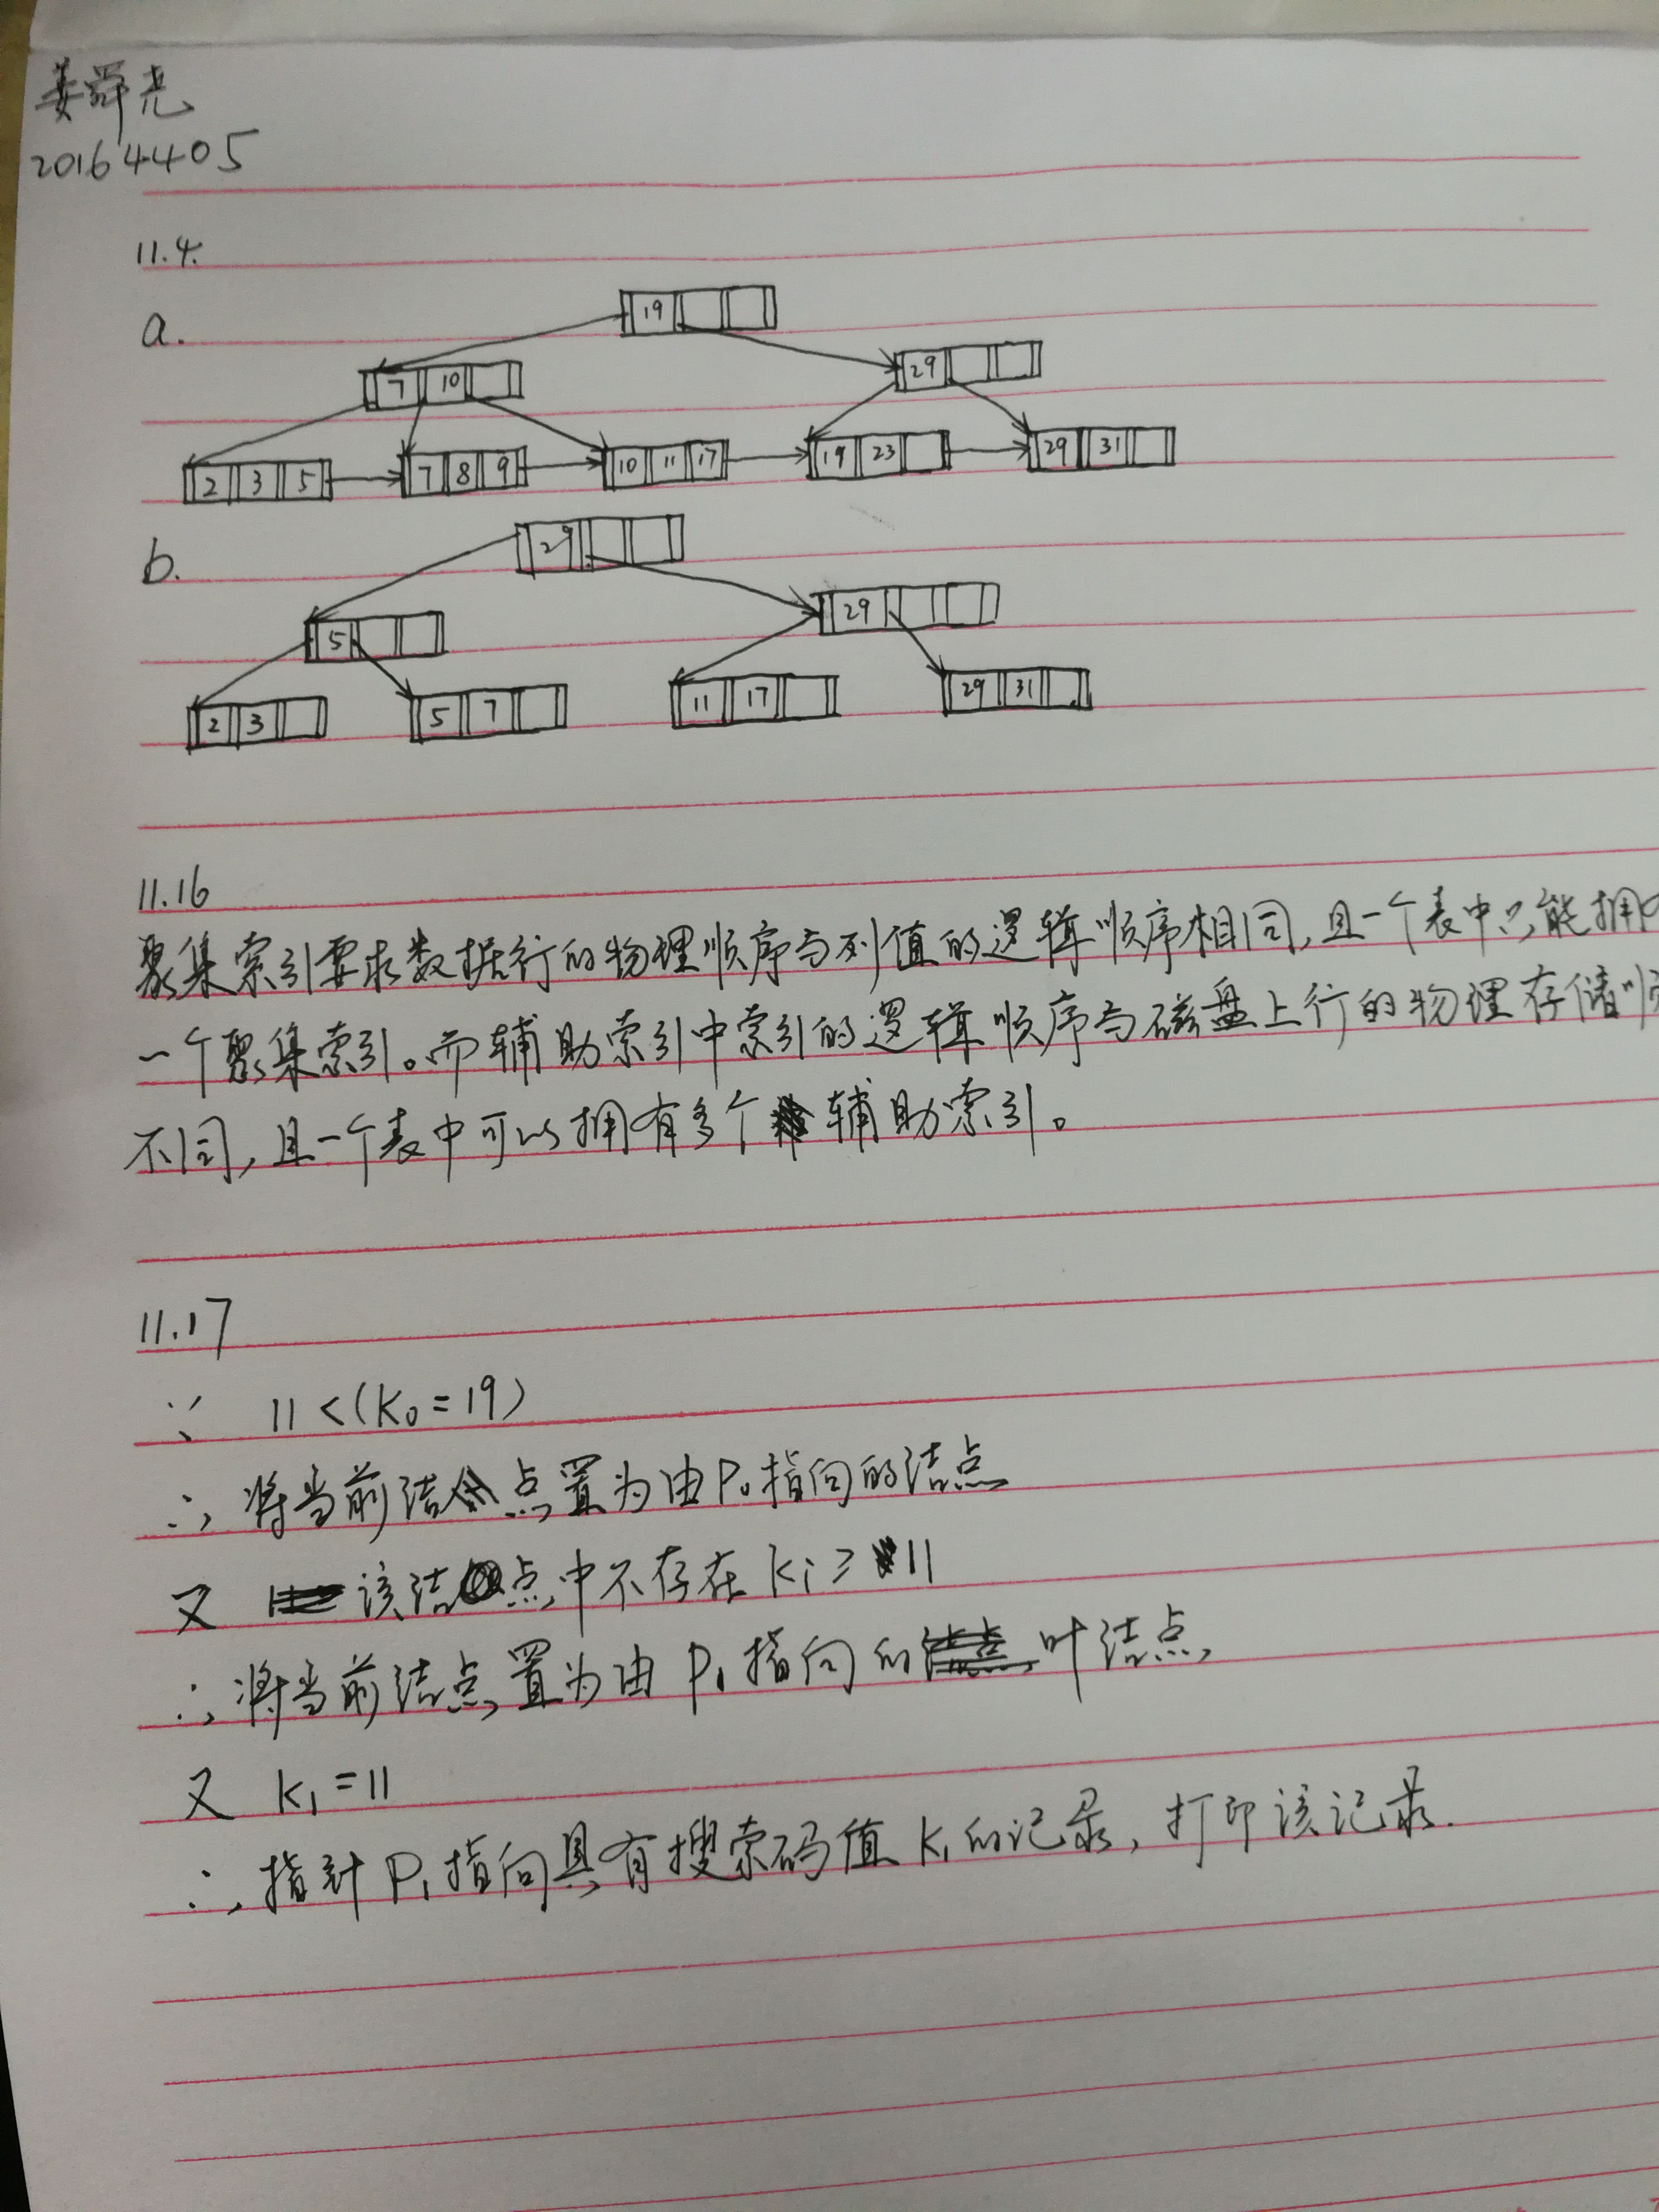 姜舜尧
20164405
11.4.
a.
19
7 10
29
2 3 5
7 8 9
10 11 17
19 23
29 31
b.
29
5
29
2 3
5 7
11 17
29 31
11.16
聚集索引要求数据行的物理顺序与列值的逻辑顺序相同,且一个表中只能拥
一个聚集索引。而辅助索引中索引的逻辑顺序与磁盘上行的物理存储顺
不同,且一个表中可以拥有多个辅助索引。
11.17
∵ 11<(K₀=19)
∴ 将当前结点置为由P₀指向的结点
又 该结点中不存在 Ki≥11
∴ 将当前结点置为由 P₁ 指向的叶结点
又 K₁=11
∴ 指针 P₁ 指向具有搜索码值 K₁ 的记录, 打印该记录.